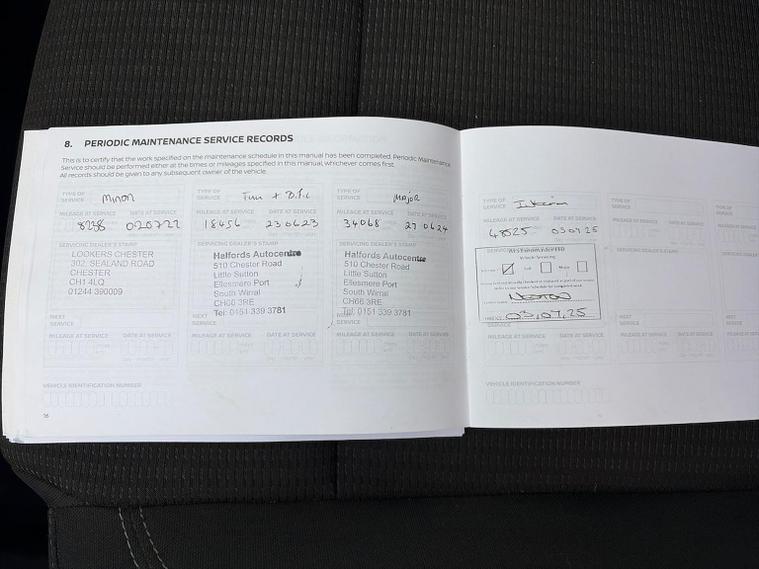 8. PERIODIC MAINTENANCE SERVICE RECORDS
This is to certify that the work specified on the maintenance schedule in this manual has been completed. Periodic Maintenance
Service should be performed either at the times or mileages specified in this manual, whichever comes first.
All records should be given to any subsequent owner of the vehicle.
TYPE OF SERVICE Minor
MILEAGE AT SERVICE DATE AT SERVICE
020722
SERVICING DEALER'S STAMP
LOOKERS CHESTER
302, SEALAND ROAD
CHESTER
CH1 4LQ
01244 390009
NEXT SERVICE
MILEAGE AT SERVICE DATE AT SERVICE
TYPE OF SERVICE
MILEAGE AT SERVICE DATE AT SERVICE
18456 230623
SERVICING DEALER'S STAMP
Halfords Autocentre
510 Chester Road
Little Sutton
Ellesmere Port
South Wirral
CH66 3RE
Tel: 0151 339 3781
NEXT SERVICE
MILEAGE AT SERVICE DATE AT SERVICE
TYPE OF SERVICE Major
MILEAGE AT SERVICE DATE AT SERVICE
34068 270624
SERVICING DEALER'S STAMP
Halfords Autocentre
510 Chester Road
Little Sutton
Ellesmere Port
South Wirral
CH66 3RE
Tel: 0151 339 3781
NEXT SERVICE
MILEAGE AT SERVICE DATE AT SERVICE
VEHICLE IDENTIFICATION NUMBER
16
TYPE OF SERVICE Interim
MILEAGE AT SERVICE DATE AT SERVICE
48525 030725
Vehicle Servicing
Full Major
03,07,25
NEXT SERVICE
MILEAGE AT SERVICE DATE AT SERVICE
VEHICLE IDENTIFICATION NUMBER
TYPE OF SERVICE
MILEAGE AT SERVICE DATE AT SERVICE
SERVICING DEALER'S STAMP
NEXT SERVICE
MILEAGE AT SERVICE DATE AT SERVICE
TYPE OF SERVICE